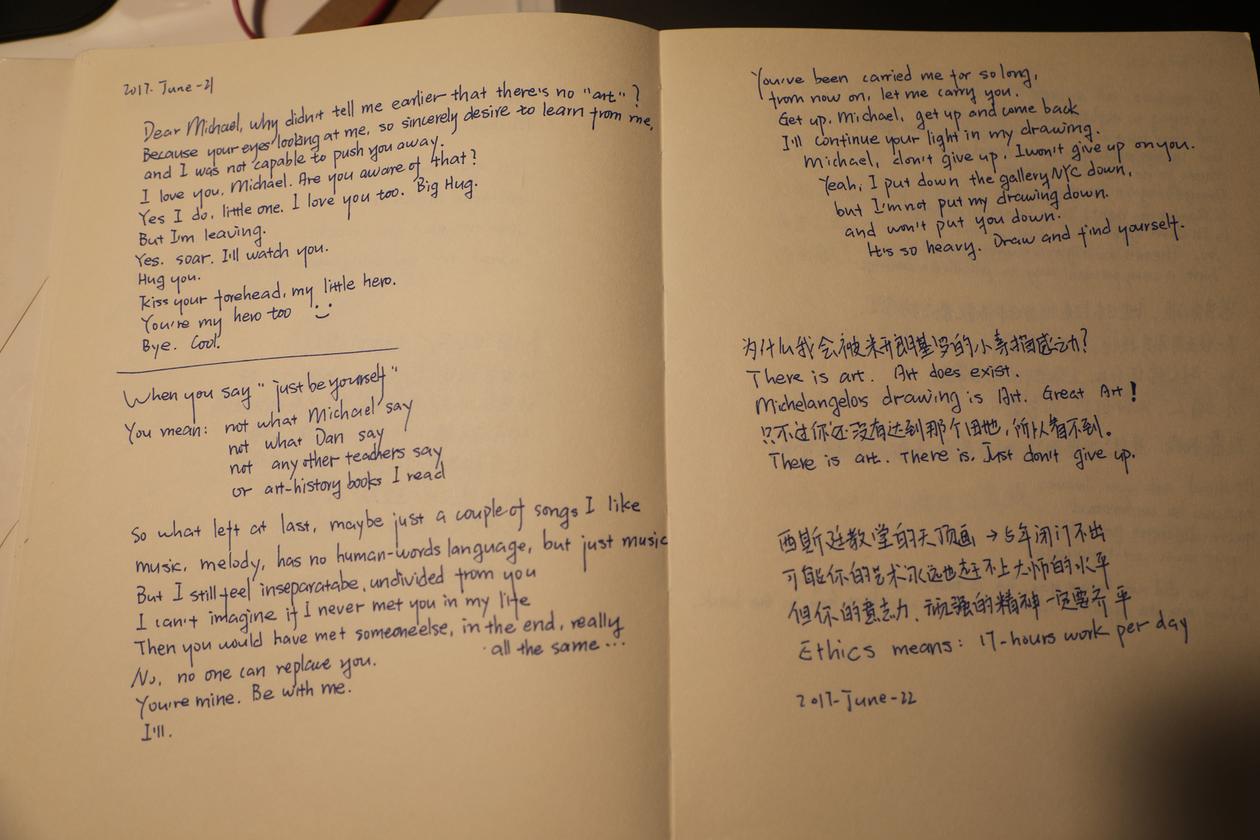 2017. June-21
Dear Michael, why didn't tell me earlier that there's no "art"?
Because your eyes looking at me, so sincerely desire to learn from me,
and I was not capable to push you away.
I love you, Michael. Are you aware of that?
Yes I do, little one. I love you too. Big Hug.
But I'm leaving.
Yes. soar. I'll watch you.
Hug you.
Kiss your forehead, my little hero.
You're my hero too
Bye. Cool.
When you say "just be yourself"
You mean: not what Michael say
not what Dan say
not any other teachers say
or art-history books I read
So what left at last, maybe just a couple of songs I like
music, melody, has no human-words language, but just music
But I still feel inseparatabe, undivided from you
I can't imagine if I never met you in my life
Then you would have met someone else, in the end, really
all the same ...
No, no one can replace you.
You're mine. Be with me.
I'll.
You've been carried me for so long,
from now on, let me carry you.
Get up. Michael, get up and come back
I'll continue your light in my drawing.
Michael, don't give up. I won't give up on you.
Yeah, I put down the gallery NYC down,
but I'm not put my drawing down.
and won't put you down.
It's so heavy. Draw and find yourself.
为什么我会被米开朗基罗的小素描感动?
There is art. Art does exist.
Michelangelos drawing is Art. Great Art!
只不过你还没有达到那个田地,所以看不到。
There is art. There is. Just don't give up.
西斯廷教堂的天顶画 → 5年闭门不出
可能你的艺术永远也赶不上大师的水平
但你的意志力、顽强的精神一定要齐平
Ethics means: 17-hours work per day
2017-June-22